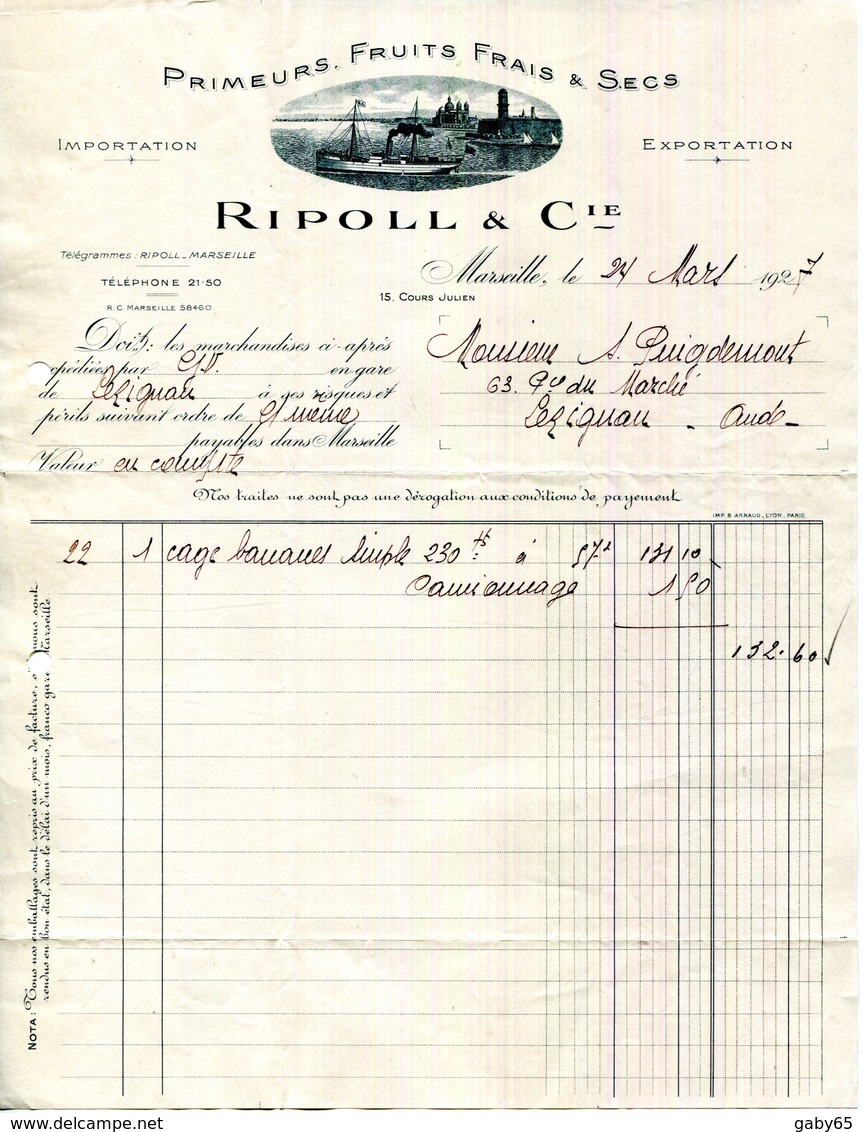 PRIMEURS, FRUITS FRAIS & SECS
IMPORTATION
EXPORTATION
RIPOLL & CIE
Télégrammes : RIPOLL-MARSEILLE
TÉLÉPHONE 21-50
R.C. MARSEILLE 58460
Marseille, le 24 Mars 1927
15, COURS JULIEN
Doit : les marchandises ci-après
expédiées par G.V. en gare
de Lezignan à ses risques et
périls suivant ordre de lui même
payables dans Marseille
Valeur en compte
Monsieur A. Puigdemont
63. Que du Marché
Lezignan - Aude -
Nos traites ne sont pas une dérogation aux conditions de payement
IMP. B. ARNAUD_LYON_PARIS
22 1 cage bananes simple 230 à 57 131 10
Camionnage 1 50
132.60
NOTA : Tous nos emballages sont repris au prix de facture, s' nous sont
rendus en bon état, dans le délai d'un mois, franco gare Marseille
www.delcampe.net
gaby65